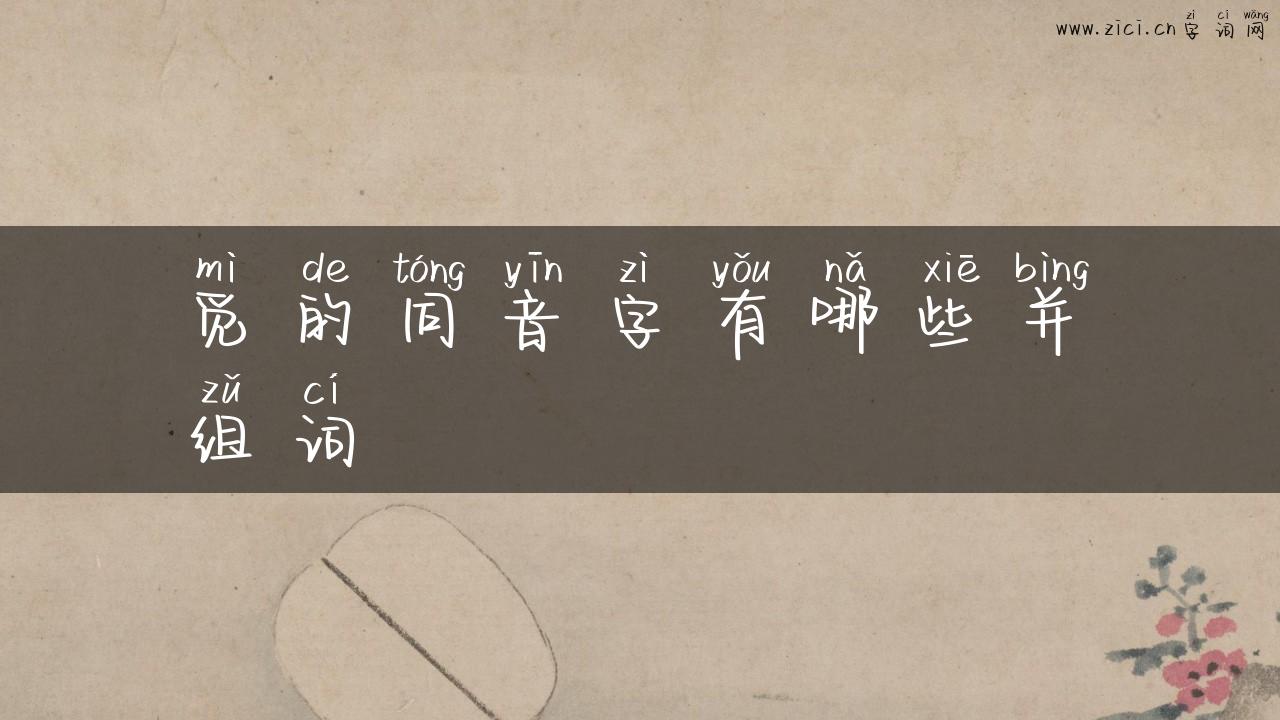 zì cí wǎng
www.zici.cn字词网
mì de tóng yīn zì yǒu nǎ xiē bìng
觅的同音字有哪些并
zǔ cí
组词